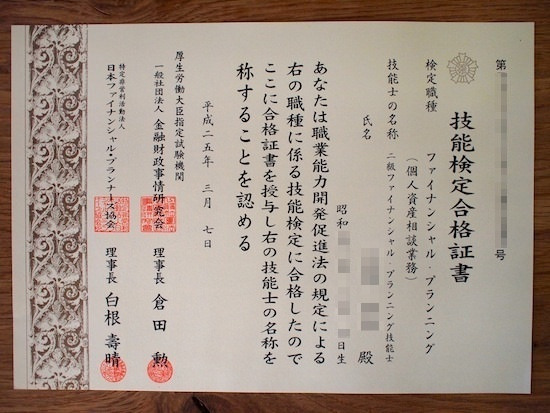 第
号
技能検定合格証書
検定職種 ファイナンシャル・プランニング
(個人資産相談業務)
技能士の名称 二級ファイナンシャル・プランニング技能士
氏名
殿
昭和
日生
あなたは職業能力開発促進法の規定による
右の職種に係る技能検定に合格したので
ここに合格証書を授与し右の技能士の名称を
称することを認める
平成二五年 三月 七日
厚生労働大臣指定試験機関
一般社団法人 金融財政事情研究会 理事長 倉田 勲
特定非営利活動法人
日本ファイナンシャル・プランナーズ協会 理事長 白根 壽晴